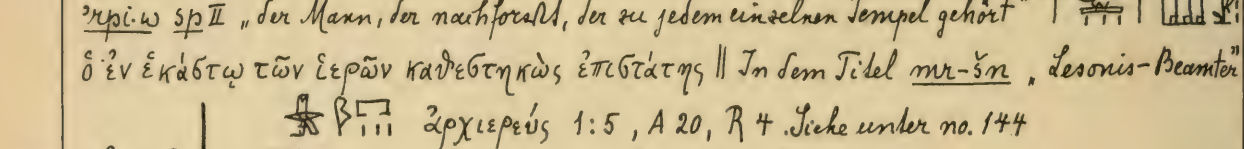 ꜣrpi.w sp II „der Mann, der nachforscht, der zu jedem einzelnen Tempel gehört“
ὁ ἐν ἑκάστῳ τῶν ἱερῶν καθεστηκὼς ἐπιστάτης || In dem Titel mr-šn „Lesonis-Beamter“
ἀρχιερεύς 1:5, A 20, R 4. Siehe unter no. 144